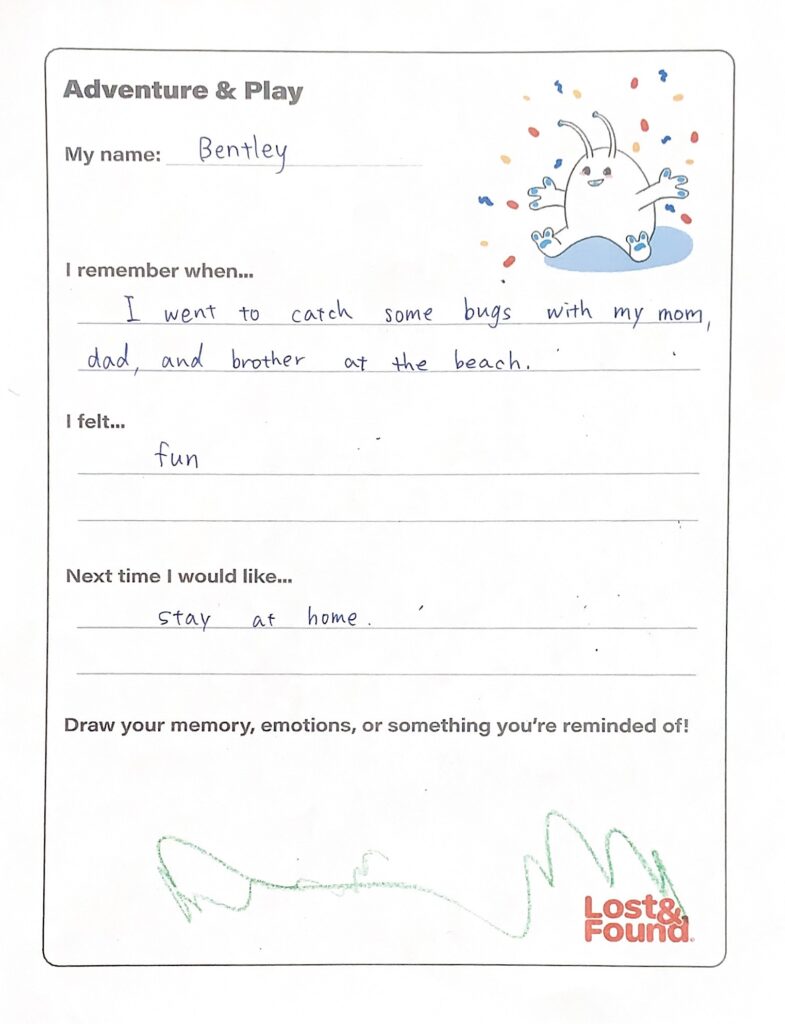 Adventure & Play
My name: Bentley
I remember when...
I went to catch some bugs with my mom,
dad, and brother at the beach.
I felt...
fun
Next time I would like...
stay at home.
Draw your memory, emotions, or something you're reminded of!
Lost&
Found